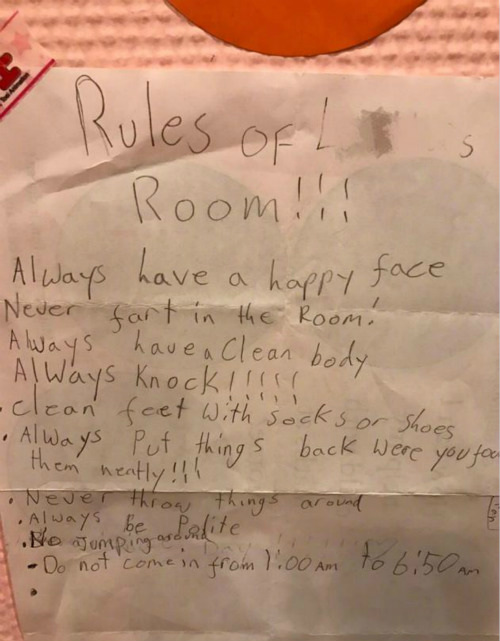 Rules OF L s
Room!!!
Always have a happy face
Never fart in the Room!
Always have a Clean body
AlWays Knock!!!!!
. Clean feet With socks or Shoes
. Always Put things back Were you fou
them neatly!!!
. Never throw things around
. Always be Polite
. No Jumping around
- Do not come in from 1:00 AM to 6:50 AM
.